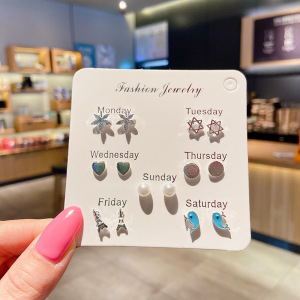 Fashion Jewelry
Monday Tuesday
Wednesday Thursday
Sunday
Friday Saturday